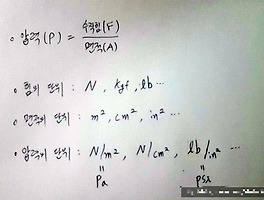 ◦ 압력(P) = 수직힘(F) / 면적(A)
◦ 힘의 단위 : N, kgf, lb ...
◦ 면적의 단위 : m², cm², in² ...
◦ 압력의 단위 : N/m², N/cm², lb/in² ...
" "
Pa psi